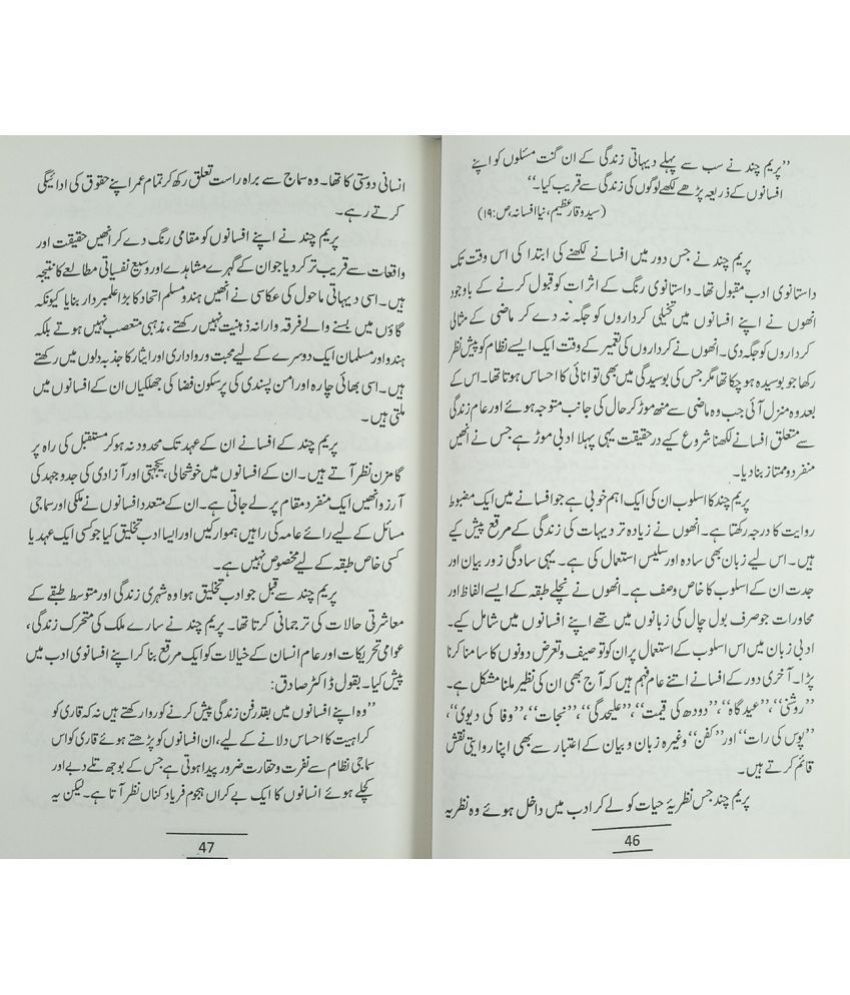 ”پریم چند نے سب سے پہلے دیہاتی زندگی کے ان گنت مسئلوں کو اپنے
افسانوں کے ذریعہ پڑھے لکھے لوگوں کی زندگی سے قریب کیا۔“
(سید وقار عظیم، نیا افسانہ، ص:۱۹)
پریم چند نے جس دور میں افسانے لکھنے کی ابتدا کی اس وقت تک
داستانوی ادب مقبول تھا۔ داستانوی رنگ کے اثرات کو قبول کرنے کے باوجود
انھوں نے اپنے افسانوں میں تخیلی کرداروں کو جگہ نہ دے کر ماضی کے مثالی
کرداروں کو جگہ دی۔ انھوں نے کرداروں کی تعمیر کے وقت ایک ایسے نظام کو پیش نظر
رکھا جو بوسیدہ ہو چکا تھا مگر جس کی بوسیدگی میں بھی توانائی کا احساس ہوتا تھا۔ اس کے
بعد وہ منزل آئی جب وہ ماضی سے منھ موڑ کر حال کی جانب متوجہ ہوئے اور عام زندگی
سے متعلق افسانے لکھنا شروع کیے درحقیقت یہی پہلا ادبی موڑ ہے جس نے انھیں
منفرد و ممتاز بنا دیا۔
پریم چند کا اسلوب ان کی ایک اہم خوبی ہے جو افسانے میں ایک مضبوط
روایت کا درجہ رکھتا ہے۔ انھوں نے زیادہ تر دیہات کی زندگی کے مرقع پیش کیے
ہیں۔ اس لیے زبان بھی سادہ اور سلیس استعمال کی ہے۔ یہی سادگی زور بیان اور
جدت ان کے اسلوب کا خاص وصف ہے۔ انھوں نے نچلے طبقہ کے ایسے الفاظ اور
محاورات جو صرف بول چال کی زبانوں میں تھے اپنے افسانوں میں شامل کیے۔
ادبی زبان میں اس اسلوب کے استعمال پر ان کو توصیف و تعرض دونوں کا سامنا کرنا
پڑا۔ آخری دور کے افسانے اتنے عام فہم ہیں کہ آج بھی ان کی نظیر ملنا مشکل ہے۔
”روشنی“، ”عید گاہ“، ”دودھ کی قیمت“، ”علیحدگی“، ”نجات“، ”وفا کی دیوی“،
”پوس کی رات“ اور ”کفن“ وغیرہ زبان و بیان کے اعتبار سے بھی اپنا روایتی نقش
قائم کرتے ہیں۔
پریم چند جس نظریۂ حیات کو لے کر ادب میں داخل ہوئے وہ نظریہ
46
انسانی دوستی کا تھا۔ وہ سماج سے براہ راست تعلق رکھ کر تمام عمر اپنے حقوق کی ادائیگی
کرتے رہے۔
پریم چند نے اپنے افسانوں کو مقامی رنگ دے کر انھیں حقیقت اور
واقعات سے قریب تر کر دیا جو ان کے گہرے مشاہدے اور وسیع نفسیاتی مطالعے کا نتیجہ
ہیں۔ اسی دیہاتی ماحول کی عکاسی نے انھیں ہندو مسلم اتحاد کا بڑا علمبردار بنایا کیونکہ
گاؤں میں بسنے والے فرقہ وارانہ ذہنیت نہیں رکھتے، مذہبی متعصب نہیں ہوتے بلکہ
ہندو اور مسلمان ایک دوسرے کے لیے محبت و رواداری اور ایثار کا جذبہ دلوں میں رکھتے
ہیں۔ اسی بھائی چارہ اور امن پسندی کی پرسکون فضا کی جھلکیاں ان کے افسانوں میں
ملتی ہیں۔
پریم چند کے افسانے ان کے عہد تک محدود نہ ہو کر مستقبل کی راہ پر
گامزن نظر آتے ہیں۔ ان کے افسانوں میں خوشحالی، یکجہتی اور آزادی کی جدوجہد کی
آرزو انھیں ایک منفرد مقام پر لے جاتی ہے۔ ان کے متعدد افسانوں نے ملکی اور سماجی
مسائل کے لیے رائے عامہ کی راہیں ہموار کیں اور ایسا ادب تخلیق کیا جو کسی ایک عہد یا
کسی خاص طبقہ کے لیے مخصوص نہیں ہے۔
پریم چند سے قبل جو ادب تخلیق ہوا وہ شہری زندگی اور متوسط طبقے کے
معاشرتی حالات کی ترجمانی کرتا تھا۔ پریم چند نے سارے ملک کی متحرک زندگی،
عوامی تحریکات اور عام انسان کے خیالات کو ایک مرقع بنا کر اپنے افسانوی ادب میں
پیش کیا۔ بقول ڈاکٹر صادق:
”وہ اپنے افسانوں میں بقدر فن زندگی پیش کرنے کو روا رکھتے ہیں نہ کہ قاری کو
کراہیت کا احساس دلانے کے لیے، ان افسانوں کو پڑھتے ہوئے قاری کو اس
سماجی نظام سے نفرت و حقارت ضرور پیدا ہوتی ہے جس کے بوجھ تلے دبے اور
کچلے ہوئے انسانوں کا ایک بے کراں ہجوم فریاد کناں نظر آتا ہے۔ لیکن یہ
47